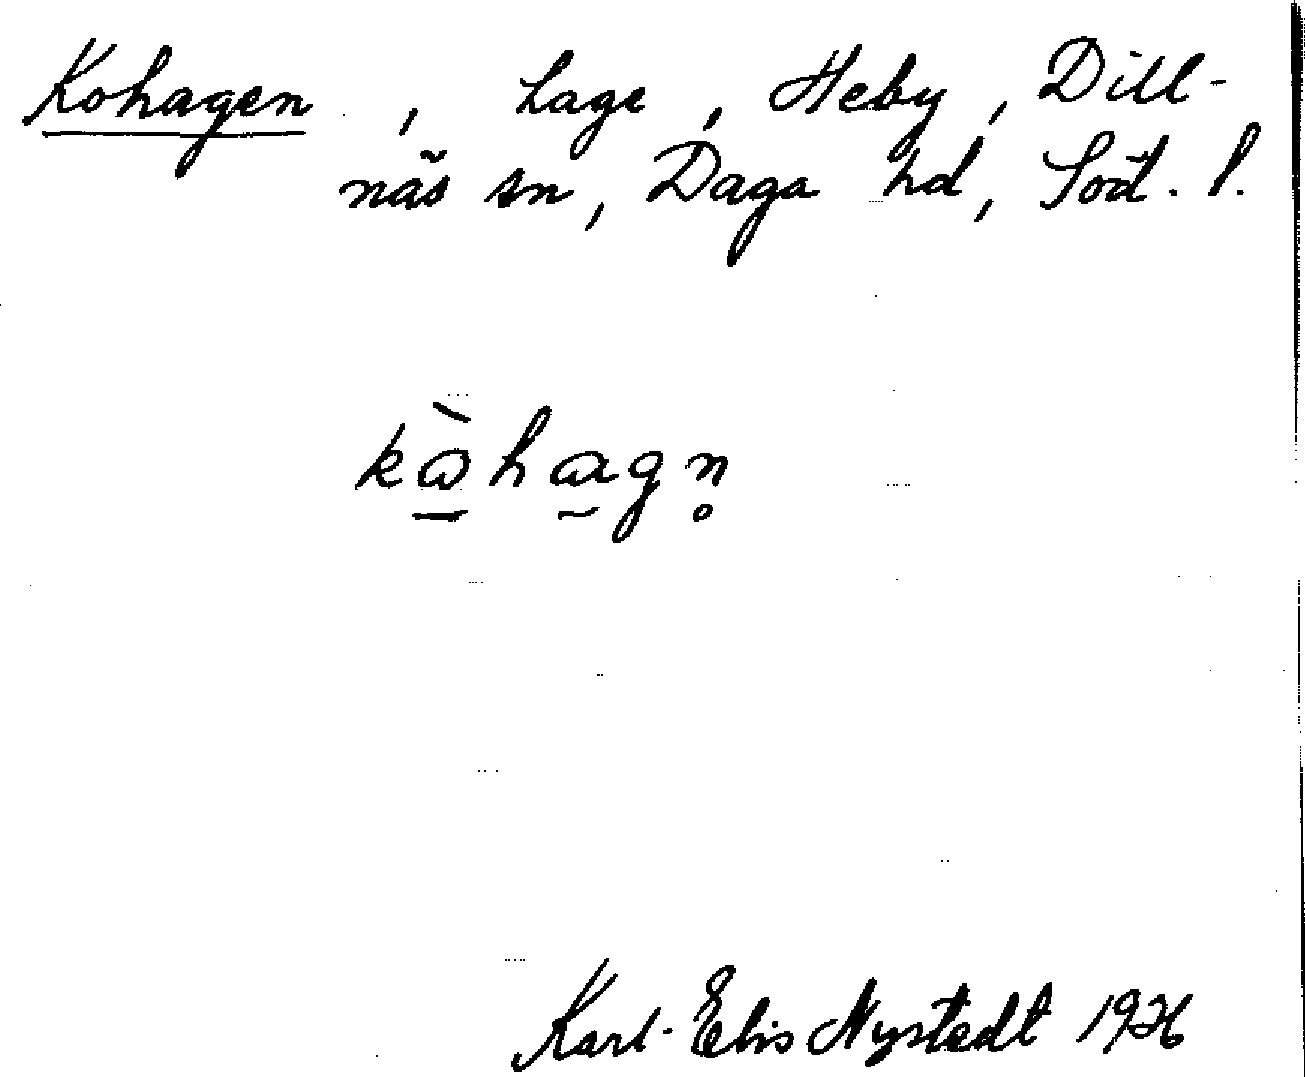 Kohagen, hage, Heby, Dill-
näs sn, Daga hd, Söd. l.
kὼhagn̥
Karl-Elis Nystedt 1926